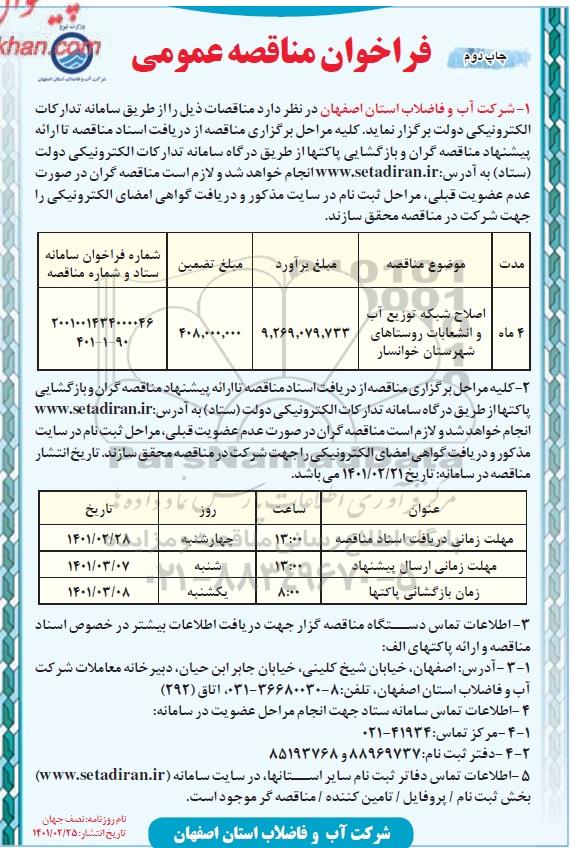 پیشخوان
khan.com
وزارت نیرو
شرکت آب و فاضلاب استان اصفهان
فراخوان مناقصه عمومی
چاپ دوم
۱- شرکت آب و فاضلاب استان اصفهان در نظر دارد مناقصات ذیل را از طریق سامانه تدارکات
الکترونیکی دولت برگزار نماید. کلیه مراحل برگزاری مناقصه از دریافت اسناد مناقصه تا ارائه
پیشنهاد مناقصه گران و بازگشایی پاکتها از طریق درگاه سامانه تدارکات الکترونیکی دولت
(ستاد) به آدرس: www.setadiran.ir انجام خواهد شد و لازم است مناقصه گران در صورت
عدم عضویت قبلی، مراحل ثبت نام در سایت مذکور و دریافت گواهی امضای الکترونیکی را
جهت شرکت در مناقصه محقق سازند.
مدت موضوع مناقصه مبلغ برآورد مبلغ تضمین شماره فراخوان سامانه
ستاد و شماره مناقصه
۴ ماه اصلاح شبکه توزیع آب
و انشعابات روستاهای
شهرستان خوانسار ۹,۲۶۹,۰۷۹,۷۳۳ ۴۰۸,۰۰۰,۰۰۰ ۲۰۰۱۰۰۱۴۳۴۰۰۰۰۴۶
۴۰۱-۱-۹۰
۲- کلیه مراحل برگزاری مناقصه از دریافت اسناد مناقصه تا ارائه پیشنهاد مناقصه گران و بازگشایی
پاکتها از طریق درگاه سامانه تدارکات الکترونیکی دولت (ستاد) به آدرس: www.setadiran.ir
انجام خواهد شد و لازم است مناقصه گران در صورت عدم عضویت قبلی، مراحل ثبت نام در سایت
مذکور و دریافت گواهی امضای الکترونیکی را جهت شرکت در مناقصه محقق سازند. تاریخ انتشار
مناقصه در سامانه: تاریخ ۱۴۰۱/۰۲/۲۱ می باشد.
ParsNamadData
پایگاه اطلاع رسانی مناقصه و مزایده
۰۲۱-۸۸۳۴۹۶۷۰-۵
عنوان ساعت روز تاریخ
مهلت زمانی دریافت اسناد مناقصه ۱۳:۰۰ چهارشنبه ۱۴۰۱/۰۲/۲۸
مهلت زمانی ارسال پیشنهاد ۱۳:۰۰ شنبه ۱۴۰۱/۰۳/۰۷
زمان بازگشائی پاکتها ۸:۰۰ یکشنبه ۱۴۰۱/۰۳/۰۸
۳- اطلاعات تماس دستگاه مناقصه گزار جهت دریافت اطلاعات بیشتر در خصوص اسناد
مناقصه و ارائه پاکتهای الف:
۳-۱- آدرس: اصفهان، خیابان شیخ کلینی، خیابان جابر ابن حیان، دبیرخانه معاملات شرکت
آب و فاضلاب استان اصفهان، تلفن: ۸-۳۶۶۸۰۰۳۰-۰۳۱، اتاق (۲۹۲)
۴- اطلاعات تماس سامانه ستاد جهت انجام مراحل عضویت در سامانه:
۴-۱- مرکز تماس: ۴۱۹۳۴-۰۲۱
۴-۲- دفتر ثبت نام: ۸۸۹۶۹۷۳۷ و ۸۵۱۹۳۷۶۸
۵- اطلاعات تماس دفاتر ثبت نام سایر استانها، در سایت سامانه (www.setadiran.ir)
بخش ثبت نام / پروفایل / تامین کننده / مناقصه گر موجود است.
نام روزنامه: نصف جهان
تاریخ انتشار: ۱۴۰۱/۰۲/۲۵
شرکت آب و فاضلاب استان اصفهان